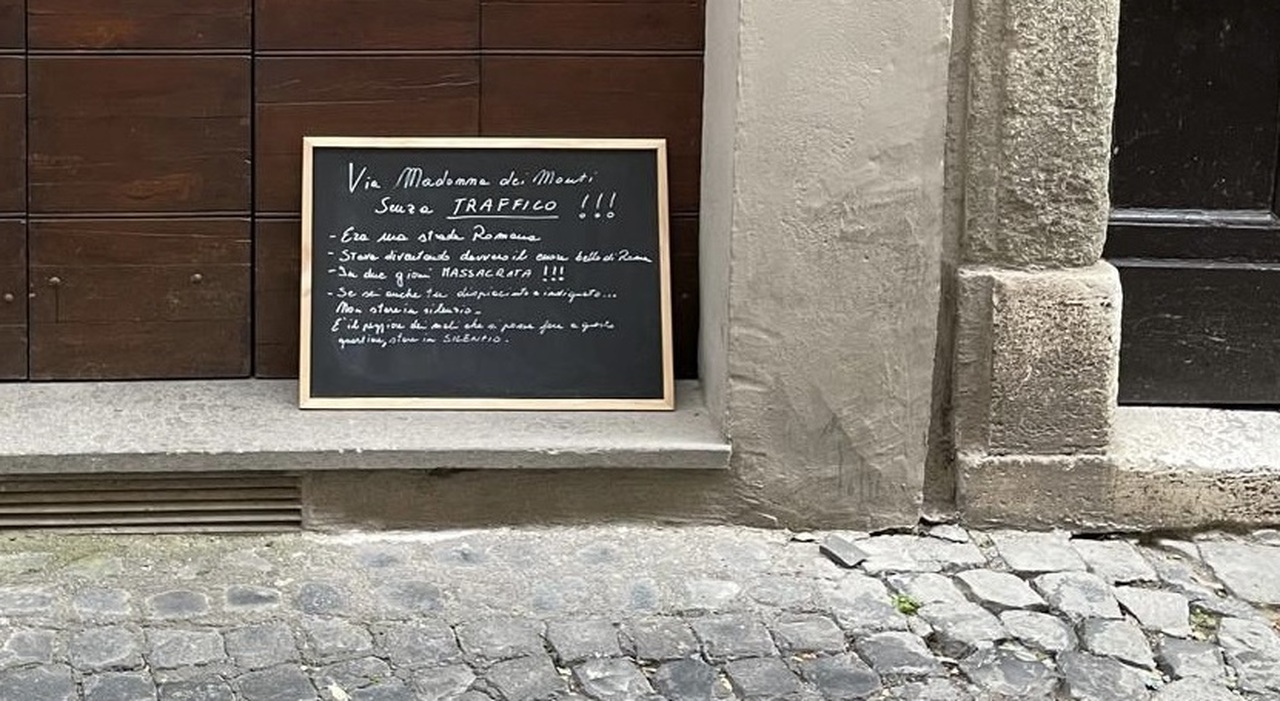 Via Madonna dei Monti
Senza TRAFFICO !!!
- Era una strada Romana
- Stava diventando davvero il cuore bello di Roma
- In due giorni MASSACRATA !!!
- Se sei anche tu dispiaciuto e indignato...
Non stare in silenzio.
E' il peggiore dei mali che si possa fare a questo
quartiere, stare in SILENZIO.